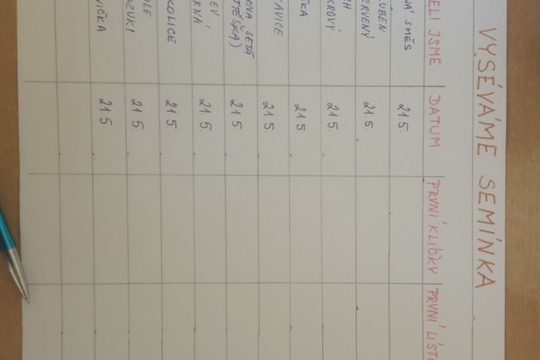 VYSÉVÁME SEMÍNKA
ELI JSME DATUM PRVNÍ KLÍČKY PRVNÍ LÍST
SMĚS 21.5.
LUBEN
ERVENÝ 21.5
KROVÝ 21.5
KA 21.5
AVICE 21.5
OVA SETÁ
21.5
EV
RNÁ 21.5
KOLICE 21.5
OLE
ZUKI 21.5
VIČKA 21.5